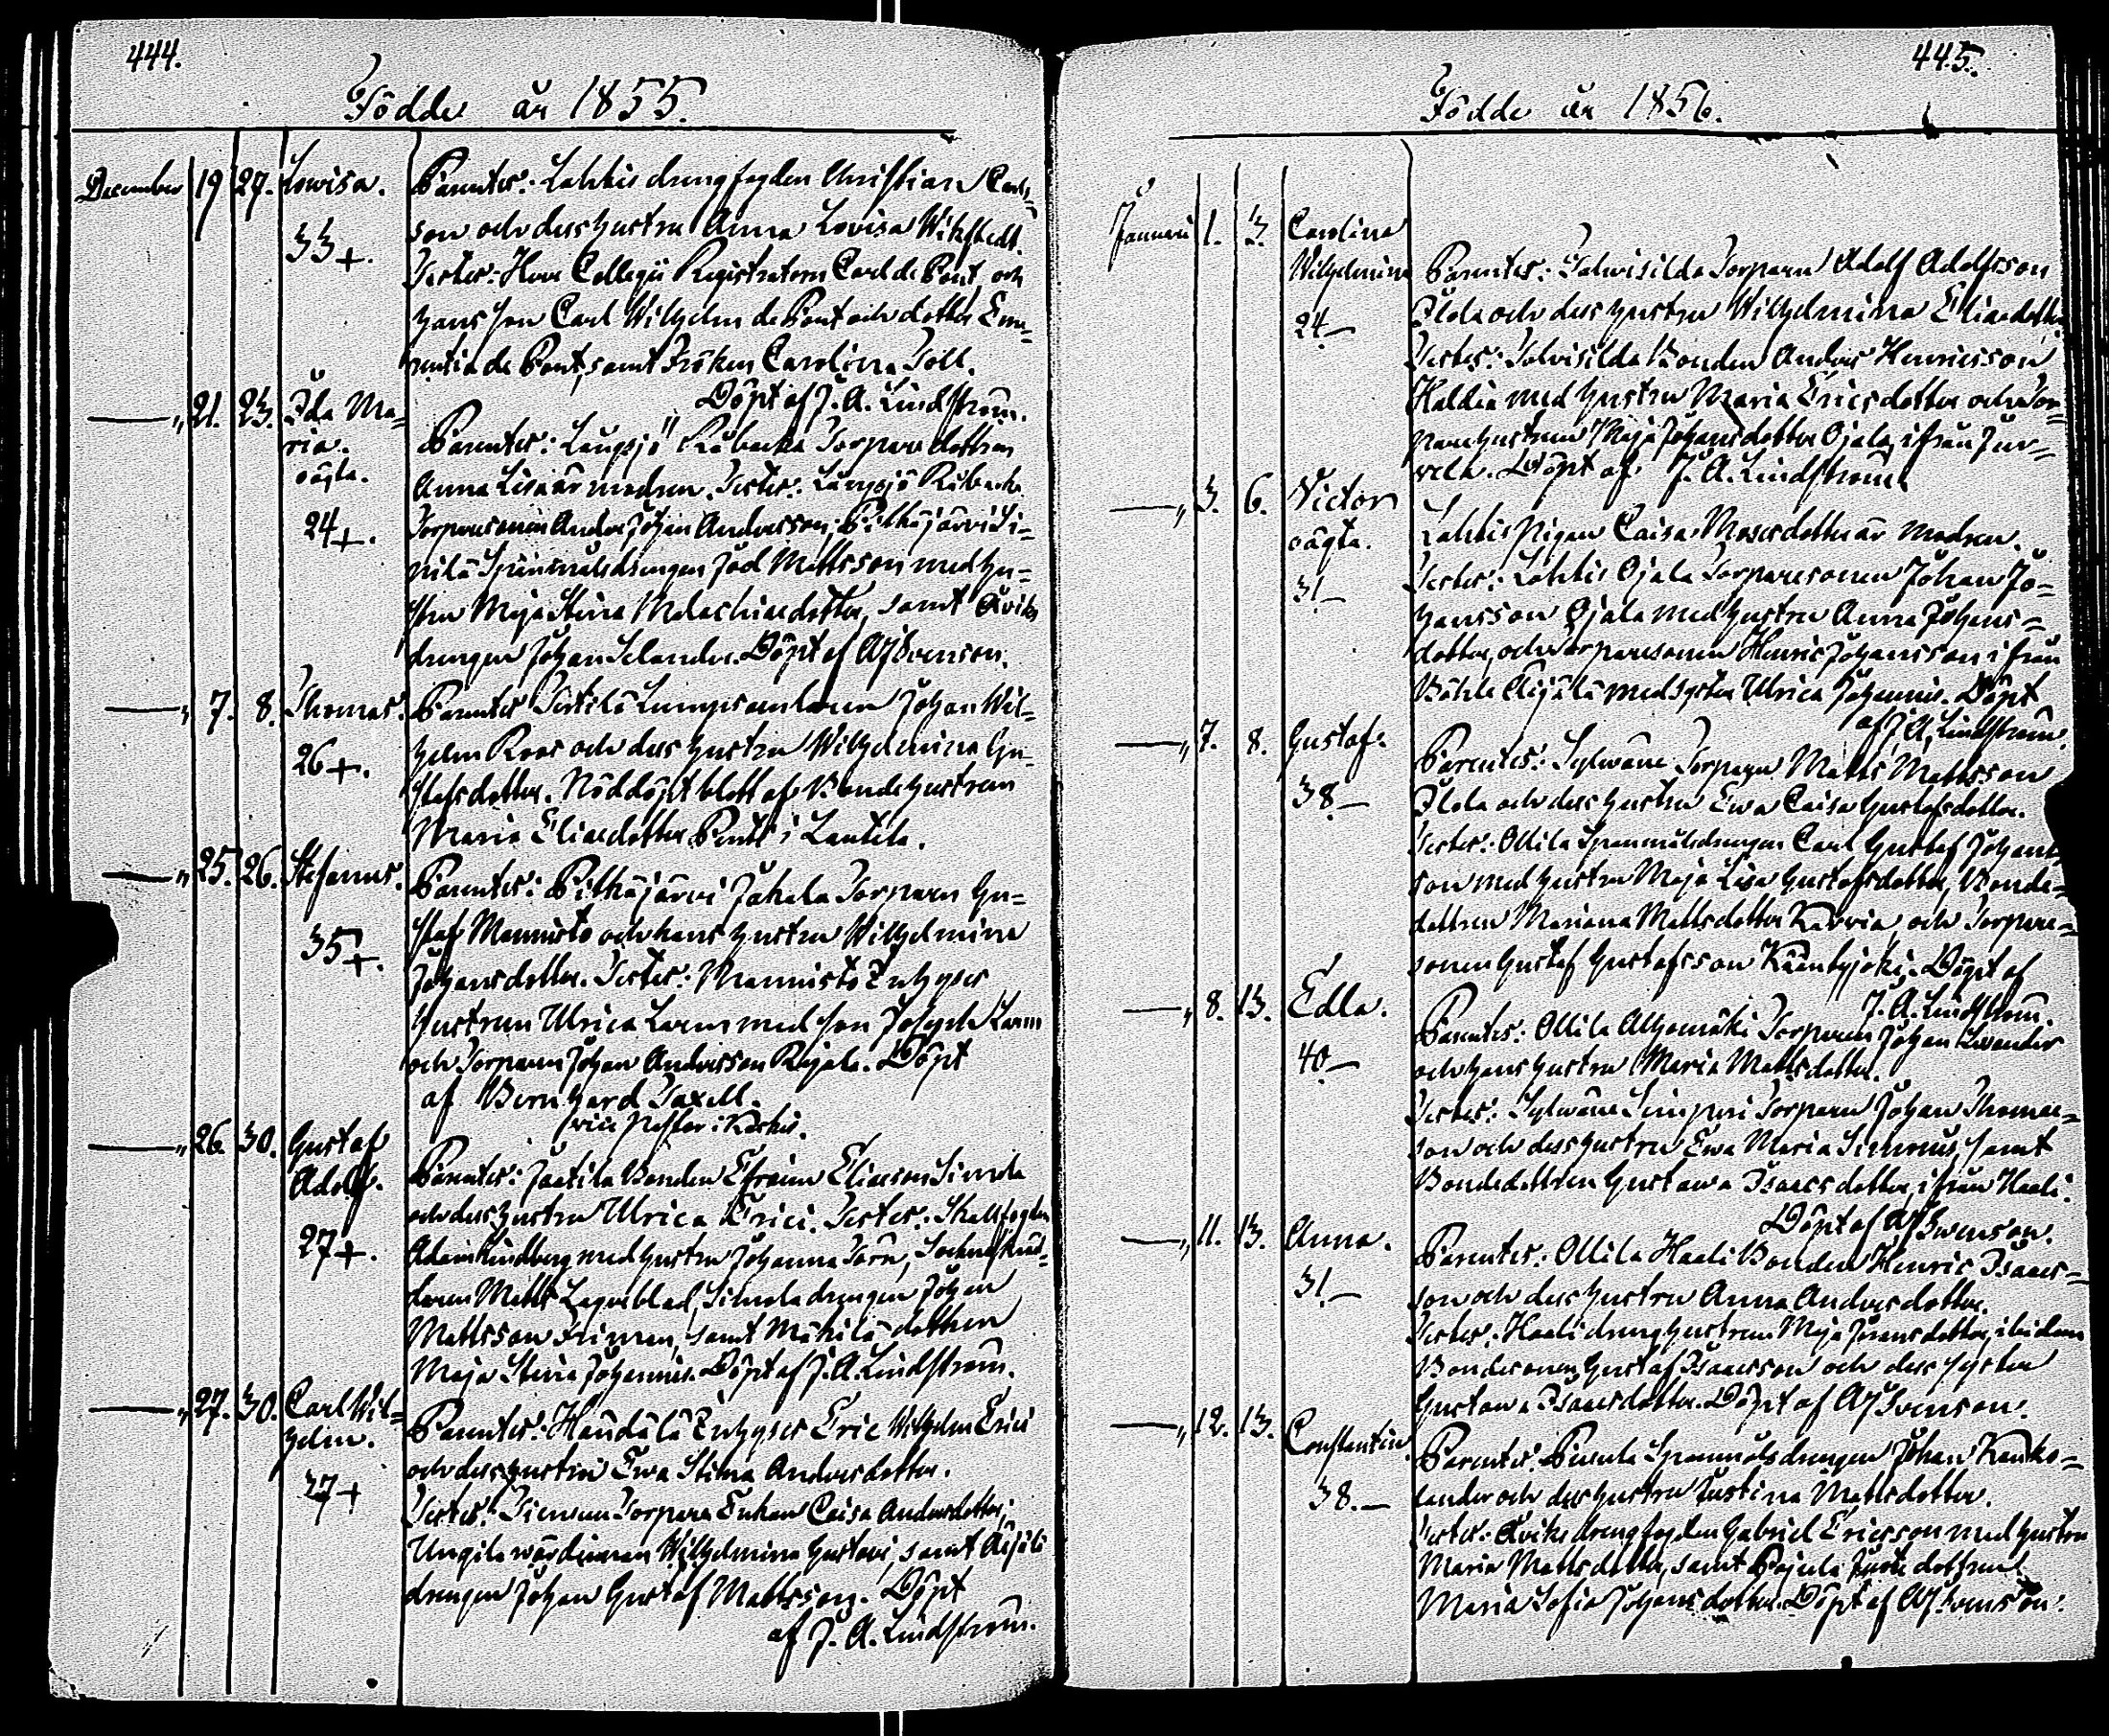 444.
Födde år 1855.
December 19 27. Lowisa. Parentes: Lahtis drengfogden Christian Carls=
33+. son och dess hustru Anna Lovisa Wikstedt.
Testes: Herr Collegii Registratorn Carl de Pont, och
hans son Carl Wilhelm de Pont och dotter Eme=
rentia de Pont, samt Fröken Carolina Toll.
Döpt af J. A. Lindström.
—„ 21. 23. Ida Ma=
ria. Parentes: Långsjö Råbacka Torpare dottren
oägta. Anna Lisa är modren. Testes: Långsjö Råbacka
24+. Torparesonen Anders Johan Andersson, Pitkäjärvi Si=
mila Spanmålsdrengen Joel Mattsson med hu=
stru Maja Stina Malachiaedotter, samt Qvika
drengen Johan Selander. Döpt af AJSvenson.
—„ 7. 8. Thomas. Parentes Lumpsamlaren Johan Wil=
26+. helm Roos och dess hustru Wilhelmina Gu=
stafsdotter. Nöddöpt blott af Bondehustrun
Maria Eliaedotter Pentti i Lautela.
—„ 25. 26. Stefanus. Parentes: Pitkäjärvi Jakala Torparen Gu=
35+. staf Mannisto och hans hustru Wilhelmina
Johansdotter. Testes: Mannisto Inhyses
hustrun Ulrica Lorm med son Joseph Lorm
och Torparen Johan Andersson Rajala. Döpt
af Bernhard Taxell.
vice Pastor i Karkis.
—„ 26. 30. Gustaf
Adolf. Parentes: Jaatila Bonden Efraim Eliaeson Simola
och dess hustru Ulrica Erici. Testes: Stallfogden
27+. Adam Lindberg med hustru Johanna Törn, Sockneskräd=
daren Matts Lagerblad, Simola drengen Johan
Mattsson Friman, samt Mäkilä dottren
Maja Stina Johannis. Döpt af J. A. Lindström.
—„ 27. 30. Carl Wil=
helm. Parentes: Handälä Inhyses Eric Wilhelm Erici
och dess hustru Ewa Stina Andersdotter.
37+ Testes: Torpare Enkan Caisa Andersdotter,
Ungila wärdinnan Wilhelmina Gustavi, samt
drengen Johan Gustaf Mattsson. Döpt
af J. A. Lindström.
445.
Födde år 1856.
Januari 1. 3. Carolina
Wilhelmina Parentes: Talwisilda Torparen Adolf Adolfsson
24— Ilola och dess hustru Wilhelmina Eliaedotter.
Testes: Talvisilda Bonden Anders Henricsson
Haldia med hustru Maria Ericsdotter och Tor=
pare hustrun Maja Johansdotter Ojala, ifrån Jur=
vela. Döpt af J. A. Lindström.
—„ 3. 6. Victor
oägta. Lahtis Pigan Caisa Mosesdotter är modren.
31— Testes: Lahtis Ojala Torparesonen Johan Jo=
hansson Ojala med hustru Anna Johans=
dotter, och Torparesonen Henric Johansson ifrån
med syster Ulrica Johannis. Döpt
af J. A. Lindström.
—„ 7. 8. Gustaf. Parentes: Sylwäna Torparen Matts Mattsson
38— Ilola och dess hustru Ewa Caisa Gustafsdotter.
Testes: Ollila Spanmålsdrengen Carl Gustaf Johans
son med hustru Maja Lisa Gustafsdotter, Bonde=
dottren Mariana Mattsdotter Karria och Torpare=
sonen Gustaf Gustafsson. Döpt af
J. A. Lindström.
—„ 8. 13. Edla. Parentes: Ollila Alhomäki Torparen Johan Levander
40— och hans hustru Maria Mattsdotter.
Testes: Sylwäna Simperi Torparen Johan Thomas=
son och dess hustru Ewa Maria Simonis, samt
Bondedottren Gustawa Isaacsdotter, ifrån Haali.
Döpt af AJSvenson.
—„ 11. 13. Anna. Parentes: Ollila Haali Bonden Henric Isaacs=
31— son och dess hustru Anna Andersdotter.
Testes: Haali drenghustrun Maja Jöransdotter, ibidem
Bondesonen Gustaf Isaacsson och dess syster
Gustawa Isaacsdotter. Döpt af AJSvenson.
—„ 12. 13. Constantin. Parentes: Pusula Spanmålsdrengen Johan Kauko=
38.— lander och dess hustru Justina Mattsdotter.
Testes: Qvika drengfogden Gabriel Ericsson med hustru
Maria Mattsdotter, samt Pajula dottren
Maria Sofia Johansdotter. Döpt af AJSvenson.